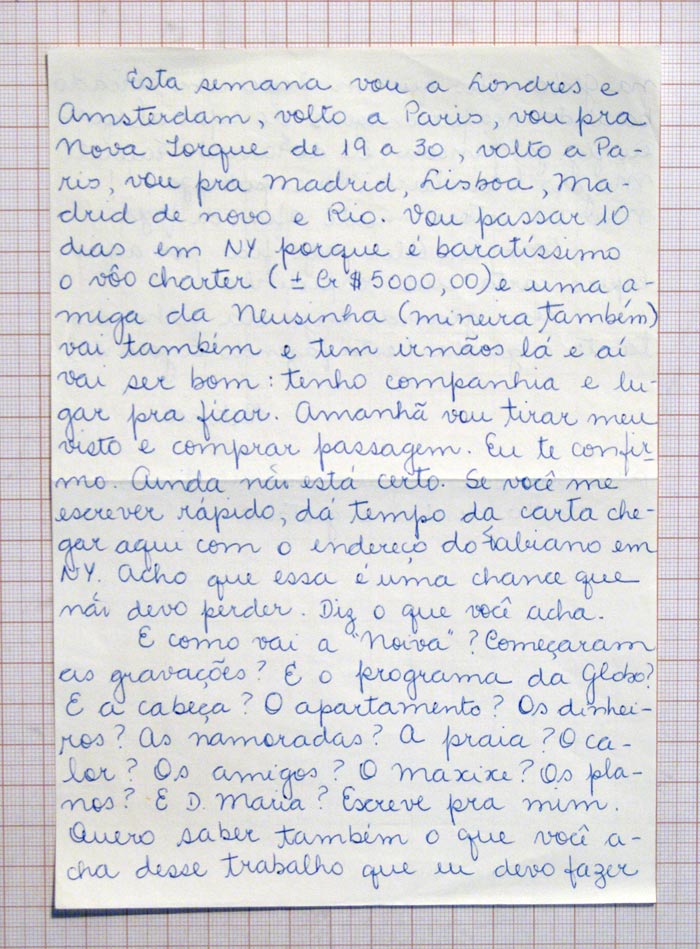 Esta semana vou a Londres e
Amsterdam, volto a Paris, vou pra
Nova Iorque de 19 a 30, volto a Pa-
ris, vou pra Madrid, Lisboa, Ma-
drid de novo e Rio. Vou passar 10
dias em NY porque é baratíssimo
o vôo charter (± Cr$5000,00) e uma a-
miga da Neusinha (mineira também)
vai também e tem irmãos lá e aí
vai ser bom: tenho companhia e lu-
gar pra ficar. Amanhã vou tirar meu
visto e comprar passagem. Eu te confir-
mo. Ainda não está certo. Se você me
escrever rápido, dá tempo da carta che-
gar aqui com o endereço do Fabiano em
NY. Acho que essa é uma chance que
não devo perder. Diz o que você acha.
E como vai a "Noiva"? Começaram
as gravações? E o programa da Globo?
E a cabeça? O apartamento? Os dinhei-
ros? As namoradas? A praia? O ca-
lor? Os amigos? O Maxixe? Os pla-
nos? E D. Maria? Escreve pra mim.
Quero saber também o que você a-
cha desse trabalho que eu devo fazer